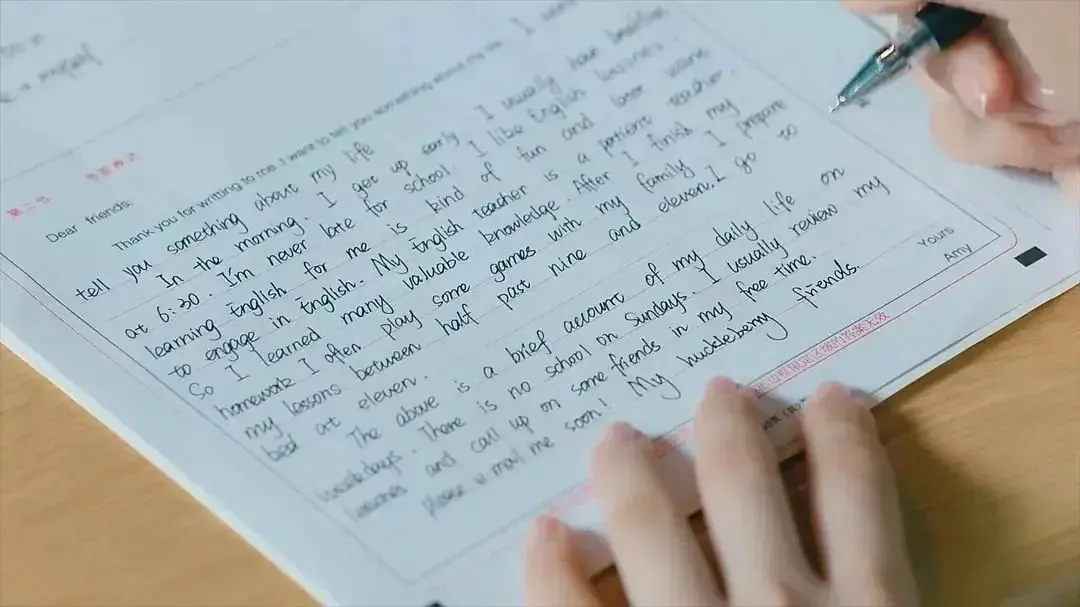 myself
第二节
书面表达
Dear friends,
Thank you for writing to me. I want to tell you something about me. I want
tell you something about my life
In the morning. I get up early. I usually have breakfast
at 6:30. I'm never late for school. I like English lessons.
learning English for me is kind of fun and later
to engage in English. My English teacher is a patient teacher.
So I learned many valuable knowledge. After I finish my
homework I often play some games with my family I prepare
my lessons between half past nine and eleven. I go to
bed at eleven.
The above is a brief account of my daily life on
weekdays. There is no school on Sundays. I usually review my
lessons and call up on some friends in my free time.
please mail me soon! My huckleberry friends.
Yours
Amy